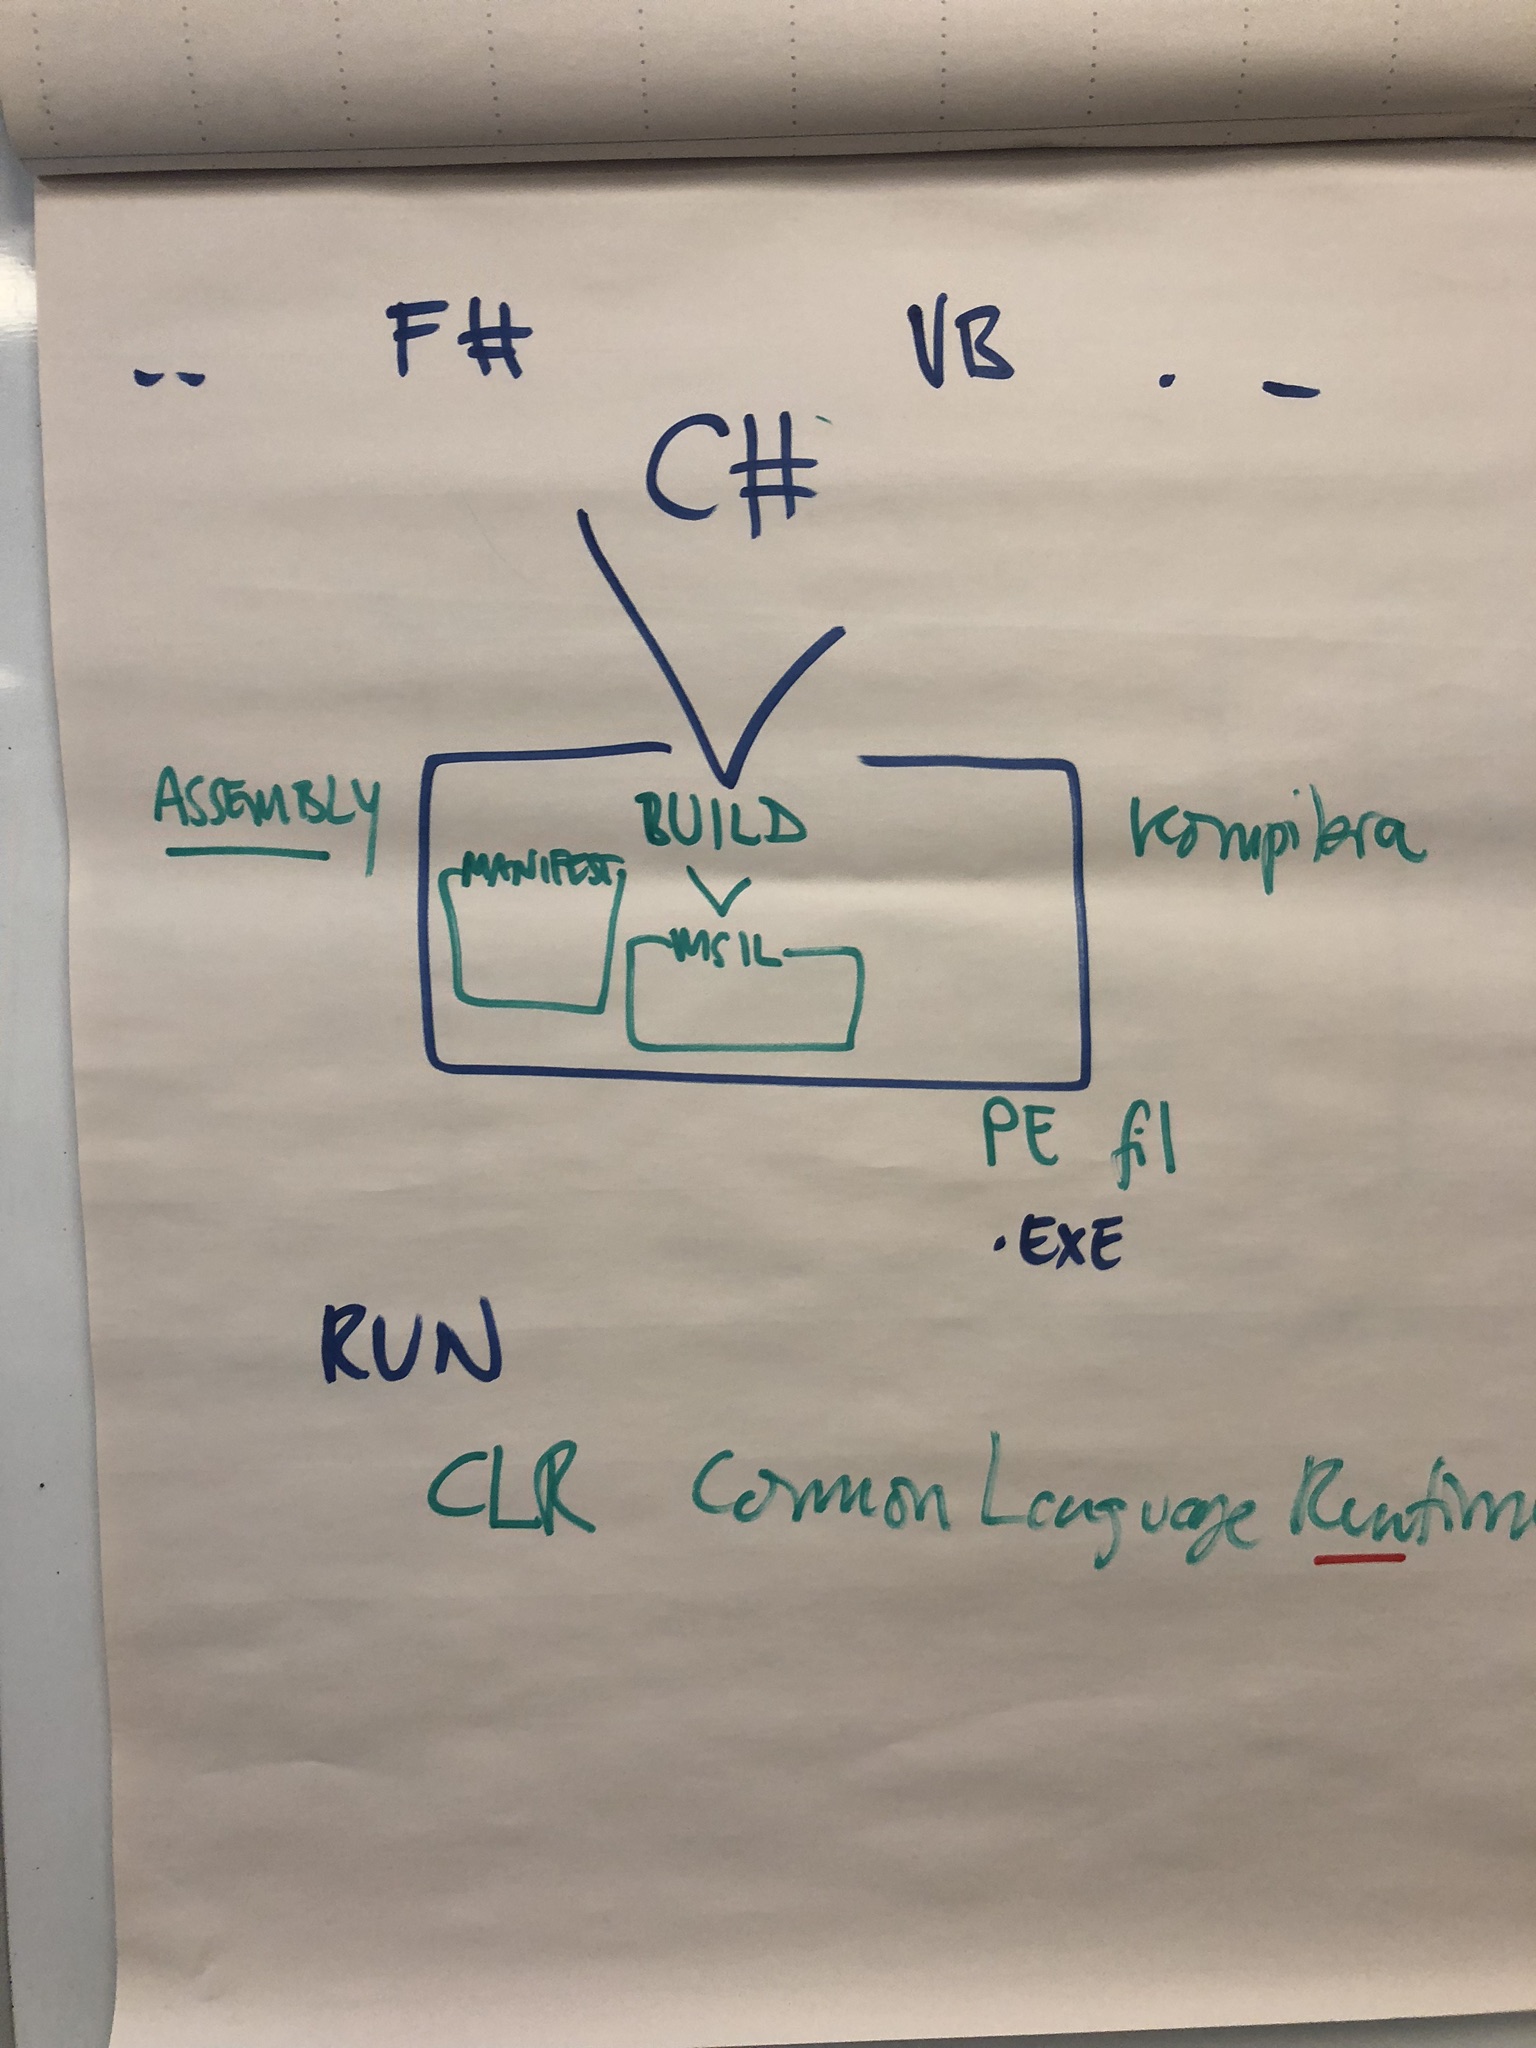 F# VB
C#
ASSEMBLY BUILD Kompilera
MANIFEST
MSIL
PE fil
.EXE
RUN
CLR Common Language Runtim